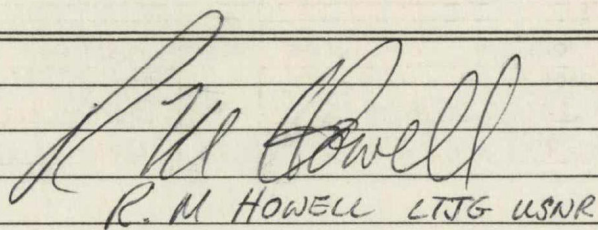 R M Howell
R. M HOWELL LTJG USNR